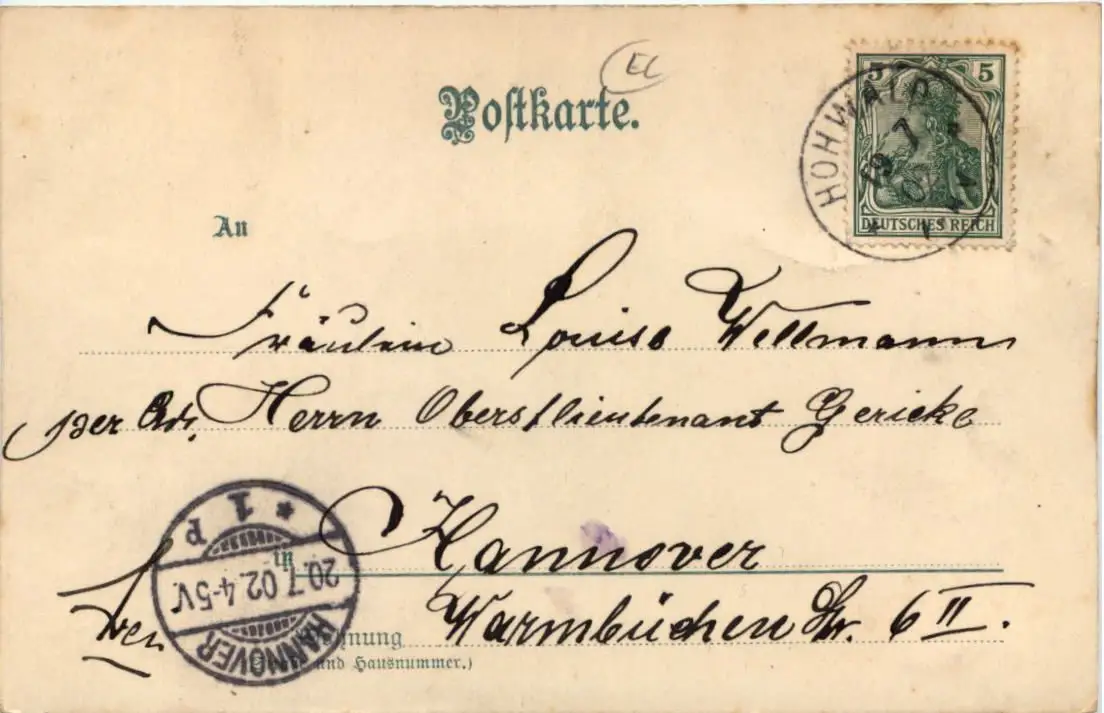 EL
Postkarte.
5 5
HOHWALD
19 7
DEUTSCHES REICH
An
Fräulein Louise Wellmann
per Adr. Herrn Oberstlieutenant Gericke
in Hannover
Warmbüchen Str. 6 II.
und Hausnummer.)
HANNOVER
20.7.02.4-5V.
* 1 p